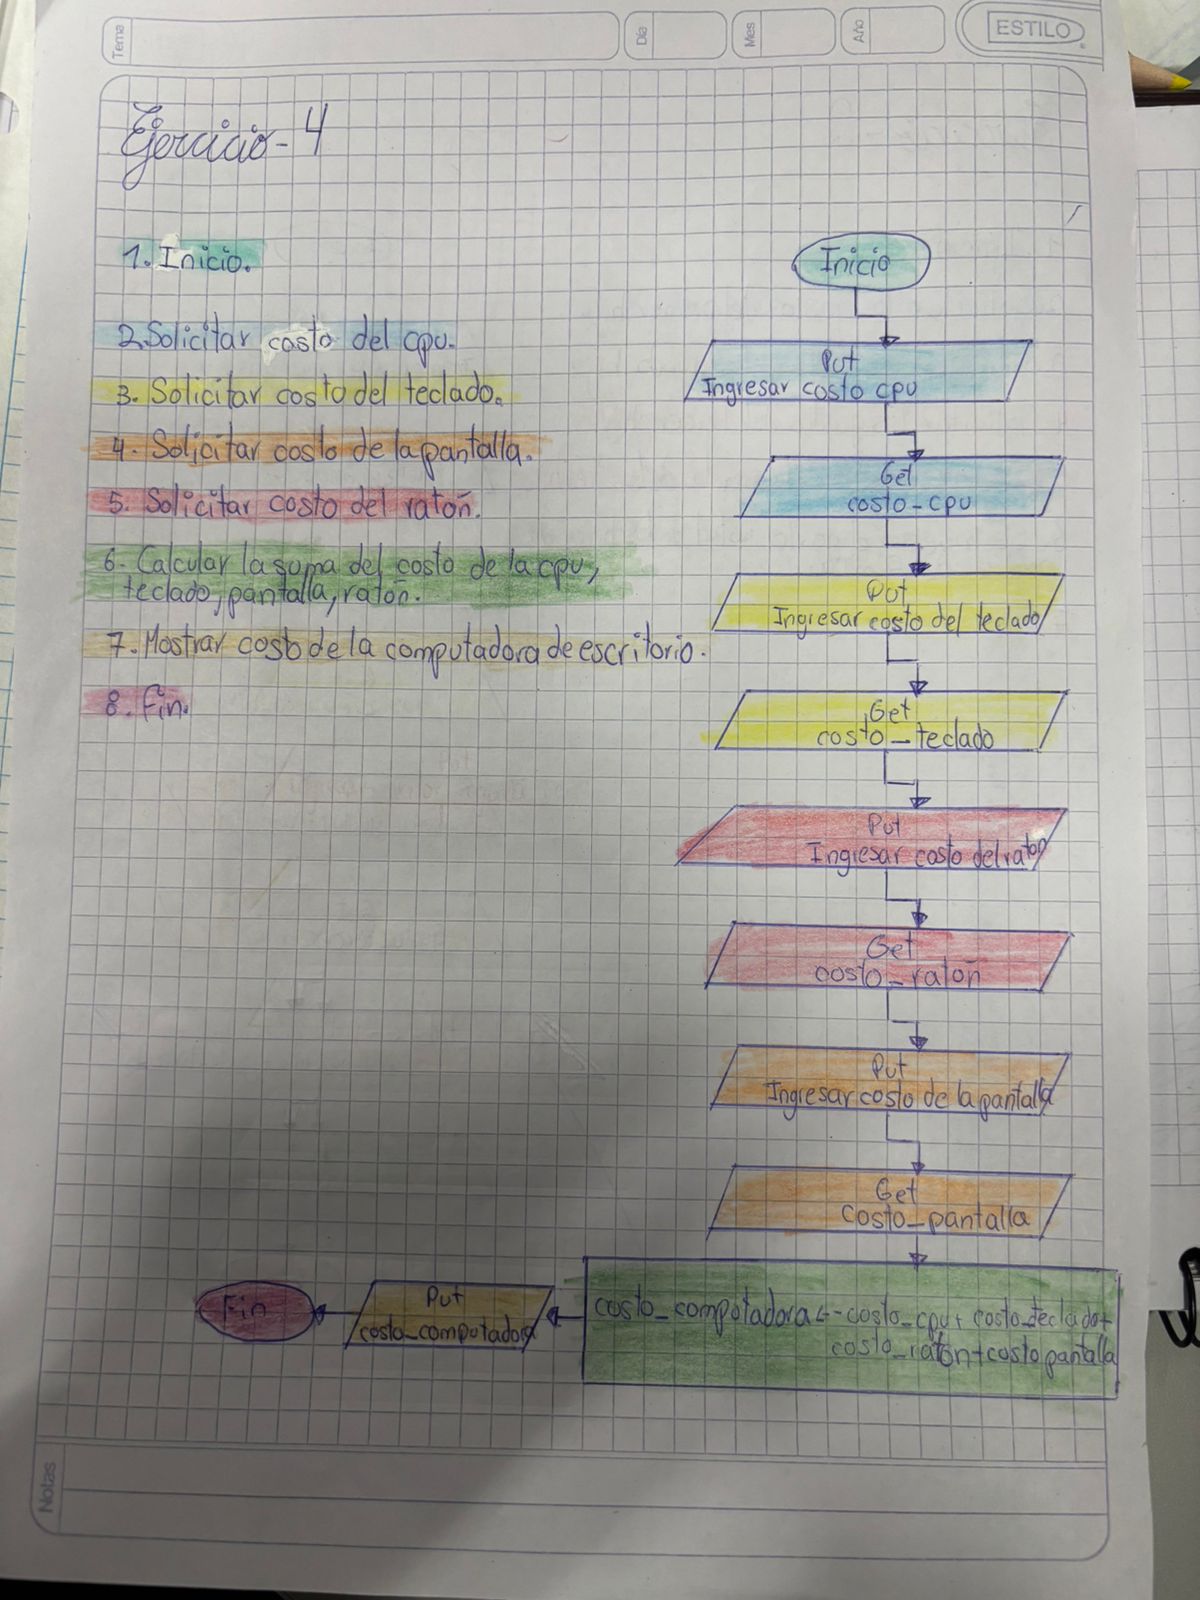 Tema
Día
Mes
Año
ESTILO
Ejercicio-4
1. Inicio.
2. Solicitar costo del cpu.
3. Solicitar costo del teclado.
4. Solicitar costo de la pantalla.
5. Solicitar costo del ratoñ.
6. Calcular la suma del costo de la cpu,
teclado, pantalla, ratoñ.
7. Mostrar costo de la computadora de escritorio.
8. Fin.
Inicio
Put
Ingresar costo cpu
Get
costo-cpu
Put
Ingresar costo del teclado
Get
costo_teclado
Put
Ingresar costo del raton
Get
costo_ratoñ
Put
Ingresar costo de la pantalla
Get
costo_pantalla
costo_computadora ← costo_cpu + costo_teclado +
costo_ratón + costo pantalla
Put
costo_computadora
Fin
Notas